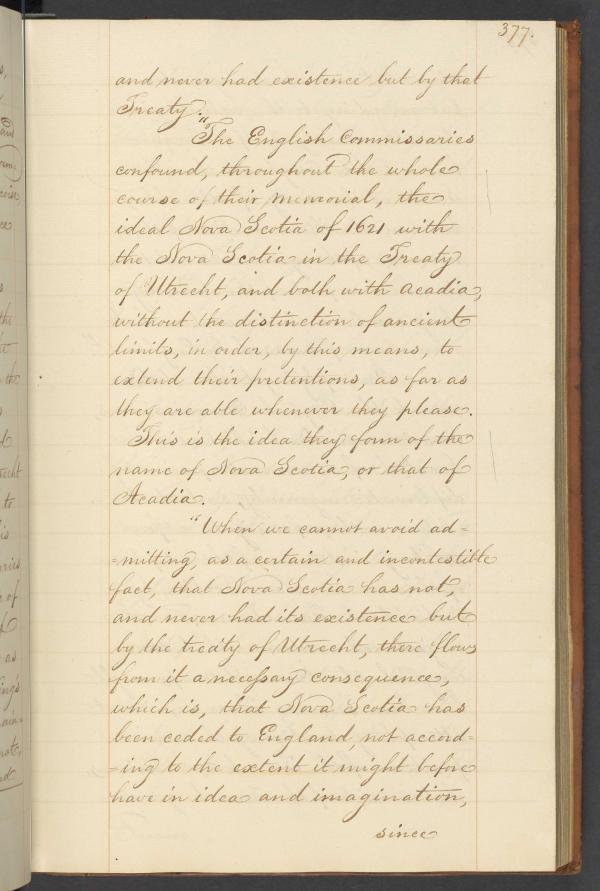 377.
and never had existence but by that
Treaty.
"The English Commissaries
confound, throughout the whole
course of their memorial, the
ideal Nova Scotia of 1621 with
the Nova Scotia in the Treaty
of Utrecht, and both with Acadia,
without the distinction of ancient
limits, in order, by this means, to
extend their pretentions, as far as
they are able whenever they please.
This is the idea they form of the
name of Nova Scotia, or that of
Acadia.
"When we cannot avoid ad=
=mitting, as a certain and incontestible
fact, that Nova Scotia has not,
and never had its existence but
by the treaty of Utrecht, there flows
from it a necessary consequence,
which is, that Nova Scotia has
been ceded to England, not accord=
=ing to the extent it might before
have in idea and imagination,
since